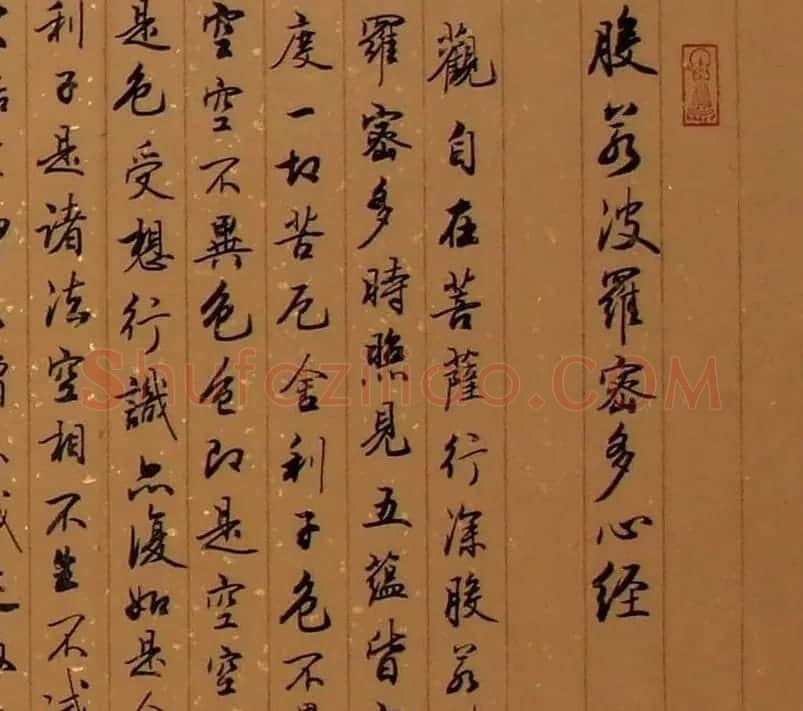 般若波羅密多心经
觀自在菩薩行深般若
羅密多時照見五蘊皆
度一切苦厄舍利子色不異
空空不異色色即是空空
是色受想行識亦復如是
利子是諸法空相不生不滅
Shufaziliao.COM